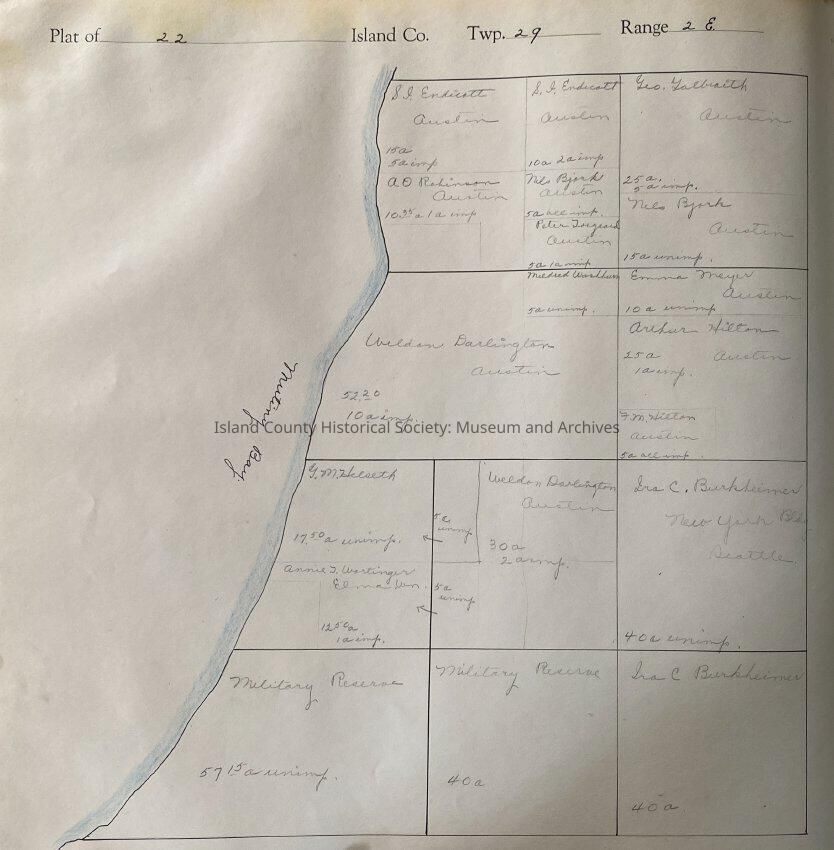 Plat of 22 Island Co. Twp. 29 Range 2 E.
S.I. Endicott
Austin
15a
5a imp
S. I. Endicott
Austin
10a 2a imp
Geo. Galbraith
Austin
25a.
5a imp.
A O Robinson
Austin
10.35a 1a imp
Nels Bjork
Austin
5a all imp.
Peter
Austin
5a 1a imp
Nels Bjork
Austin
15a unimp.
Weldon Darlington
Austin
52.20
10a imp.
Mildred Washburn
5a unimp.
Emma Meyer
Austin
10 a unimp
Arthur Hilton
25a Austin
1a imp.
F.M. Hilton
Austin
5a all imp.
Mutiny Bay
Island County Historical Society: Museum and Archives
G.M. Helseth
17.50a unimp.
5a
unimp
Weldon Darlington
Austin
30a
2a imp.
Ira C. Burkheimer
New York Bld
Seattle.
40a unimp.
Annie T. Wertinger
Elma Wn.
12.50a
1a imp.
5a
unimp
Military Reserve
57 15a unimp.
Military Reserve
40a
Ira C Burkheimer
40a